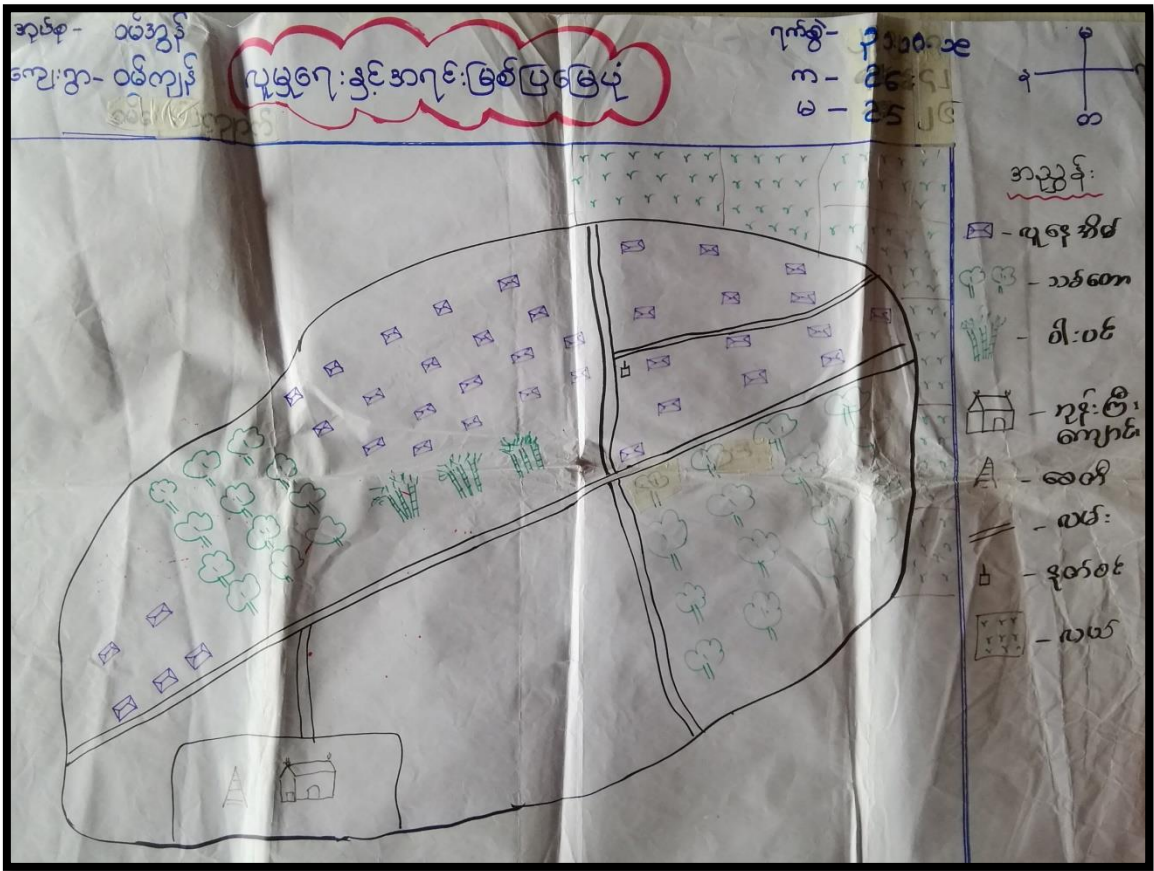 အုပ်စု - ဝမ်အွန်
ကျေးရွာ - ဝမ်ကျန်
လူမှုရေးနှင့်အရင်းမြစ်ပြမြေပုံ
ရက်စွဲ -
က -
မ -
မ
န
တ
အညွှန်း
- လူနေအိမ်
- သစ်တော
- ဝါးပင်
- ဘုန်းကြီး
ကျောင်း
- စေတီ
- လမ်း
- နတ်စင်
- လယ်